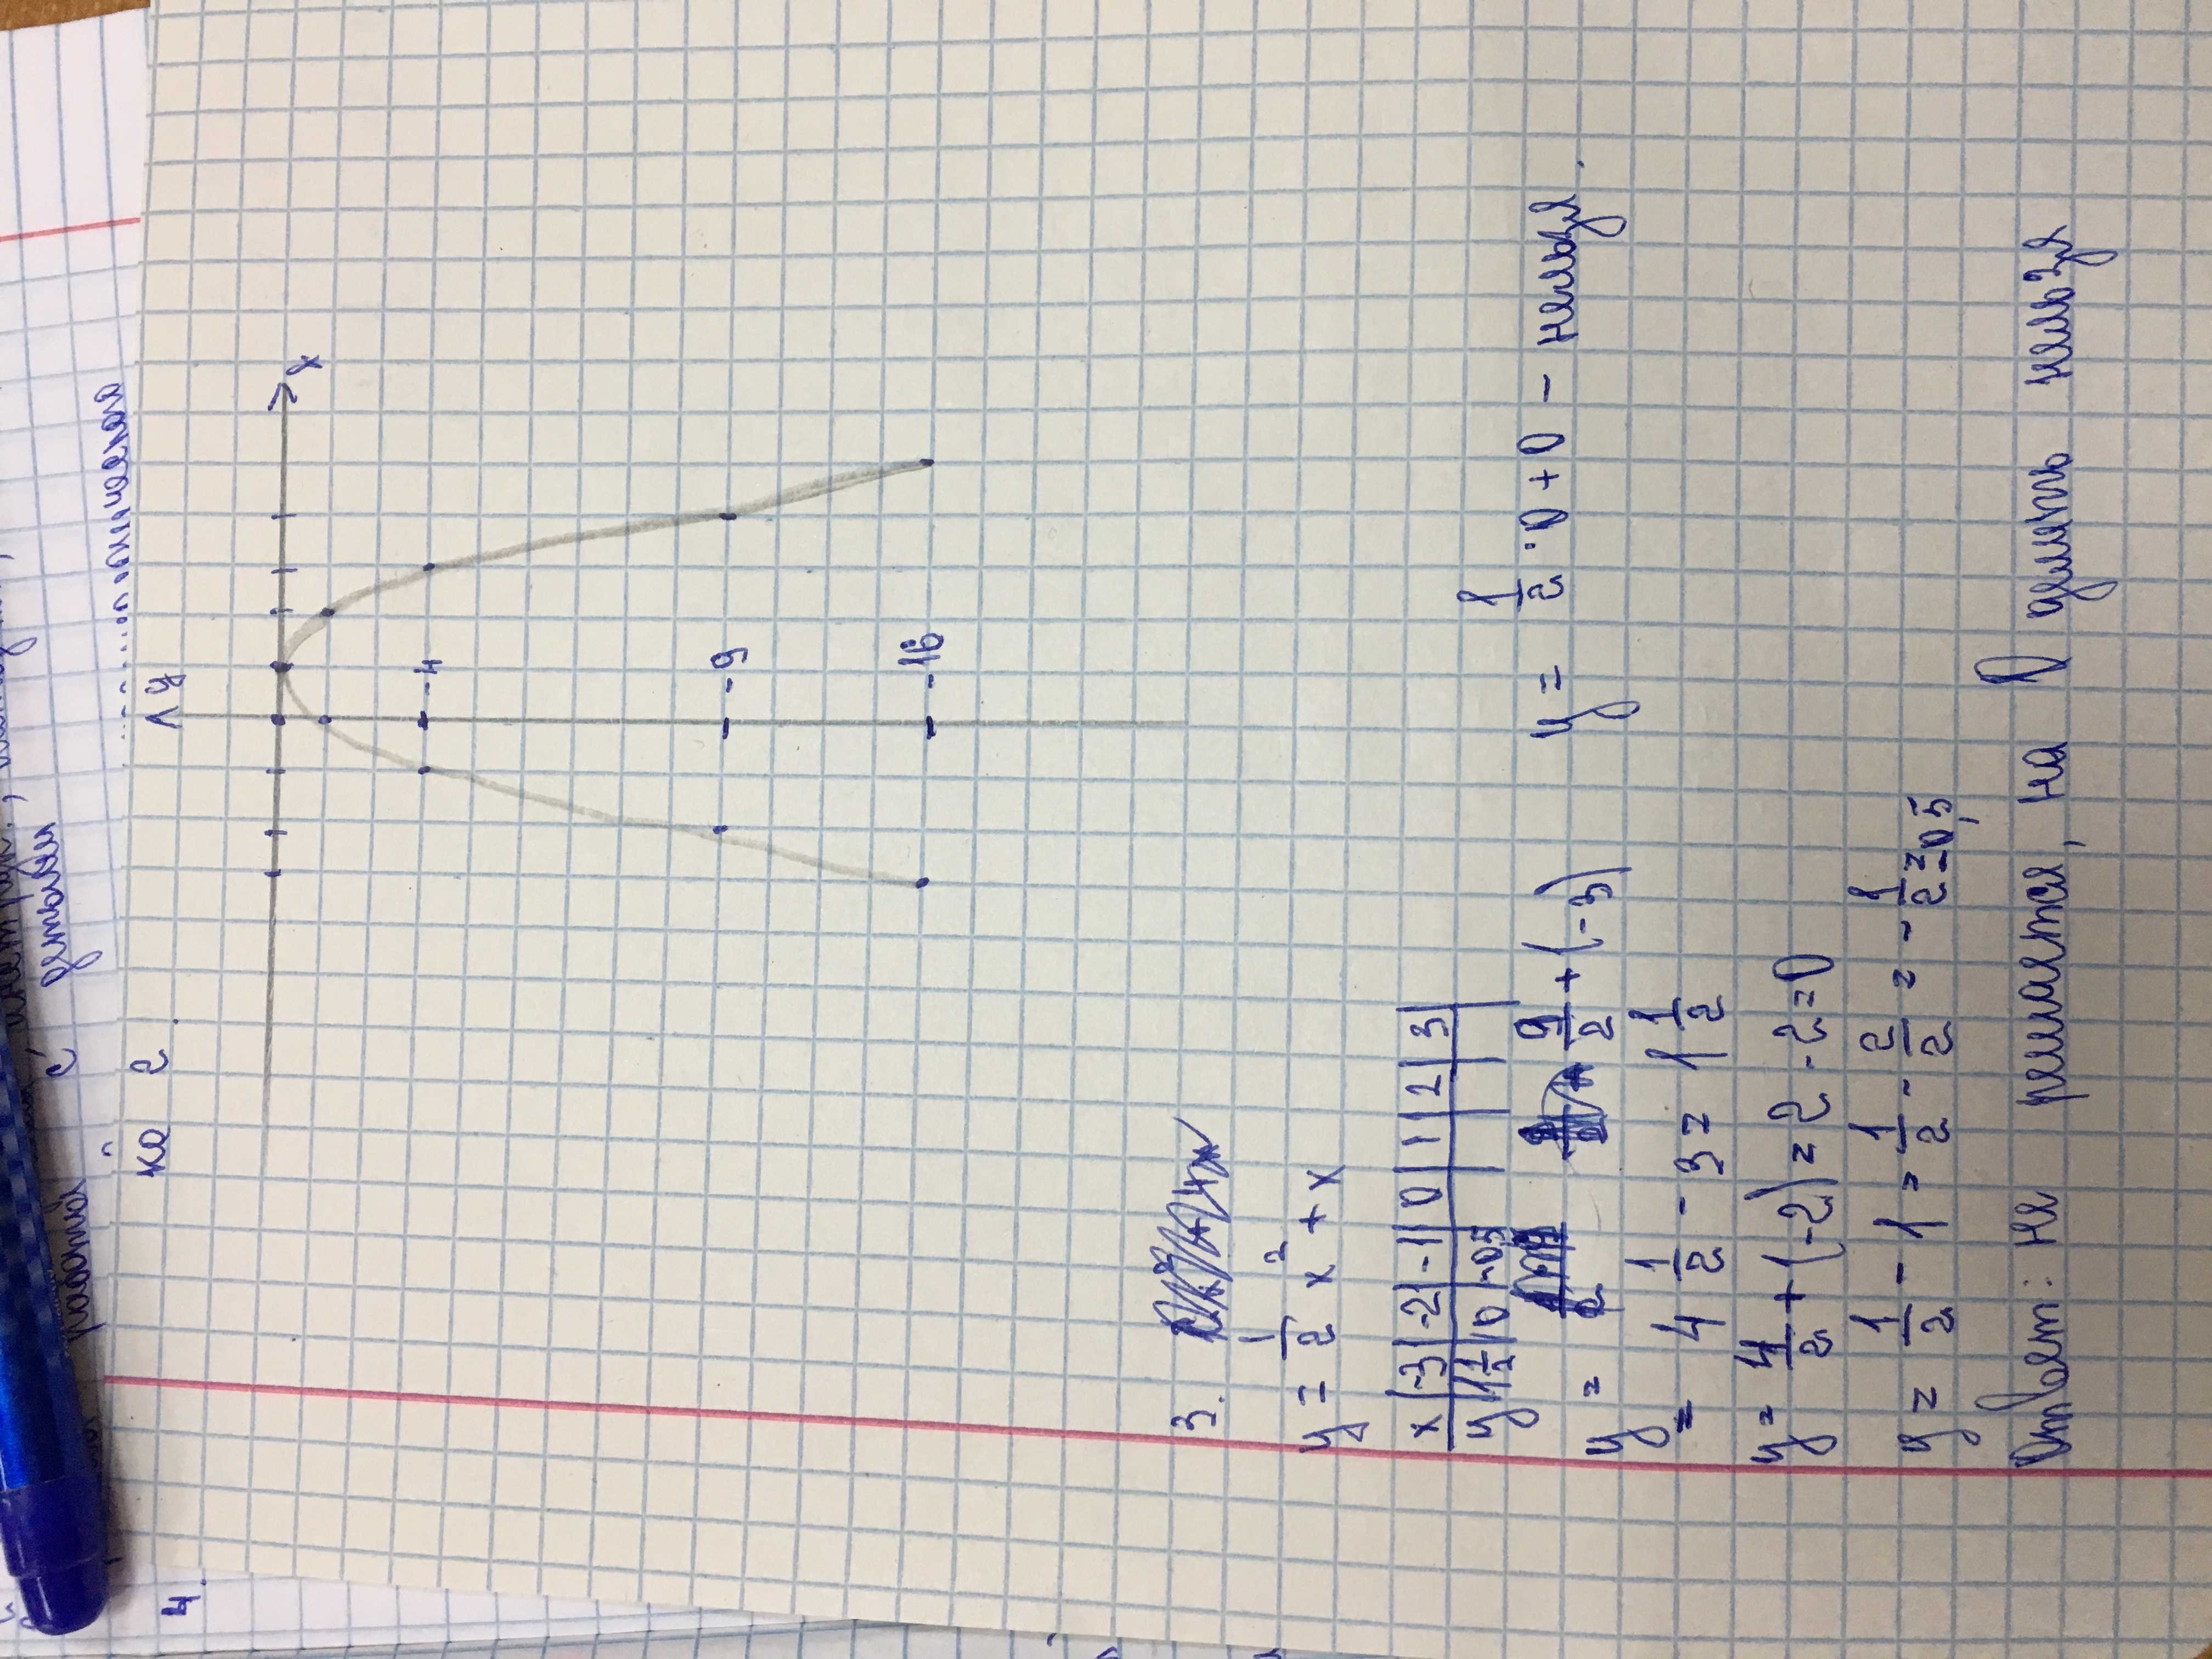 с детьми
работы
4.
ке 2
у
х
-4
-9
-16
3.
y = 1/2 x² + x
x | -3 | -2 | -1 | 0 | 1 | 2 | 3
y | 1 1/2 | 0 | -0,5
y = 9/2 + (-3)
y = 1/2 · 0 + 0 - нельзя.
= 4 1/2 - 3 = 1 1/2
y = 4/2 + (-2) = 2 - 2 = 0
y = 1/2 - 1 = 1/2 - 2/2 = - 1/2 = -0,5
Ответ: не решается, на 0 делить нельзя